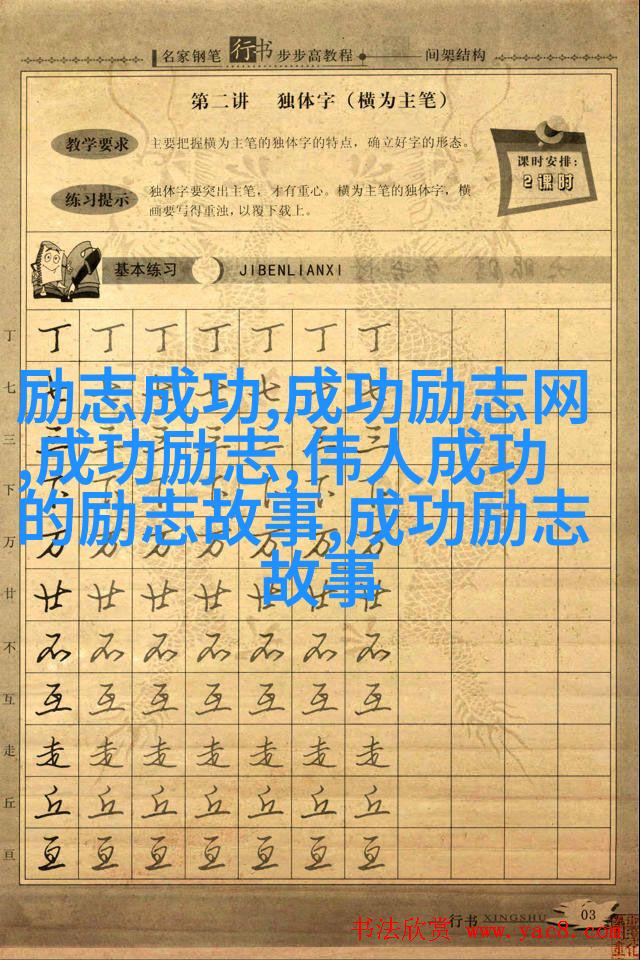 名家钢笔 行书 步步高教程 间架结构
第二讲 独体字（横为主笔）
教学要求 主要把握横为主笔的独体字的特点，确立好字的形态。
课时安排：
2课时
练习提示 独体字要突出主笔，才有重心。横为主笔的独体字，横
画要写得重浊，以覆下载上。
基本练习 JIBENLIANXI
丁 丁 丁 丁 丁 丁 丁 丁
七
励志成功,成功励志网
三
,成功励志,伟人成功
下
的励志故事,成功励志
万
故事
廿 廿 廿 廿 廿 廿 廿 廿
不 不 不 不 不 不 不 不
互 互 互 互 互 互 互 互
走 走 走 走 走 走 走 走
丘 丘 丘 丘 丘 丘 丘 丘
亘 亘 亘 亘 亘 亘 亘 亘
行书 XINGSHU 03
书法欣赏 www.yac8.com